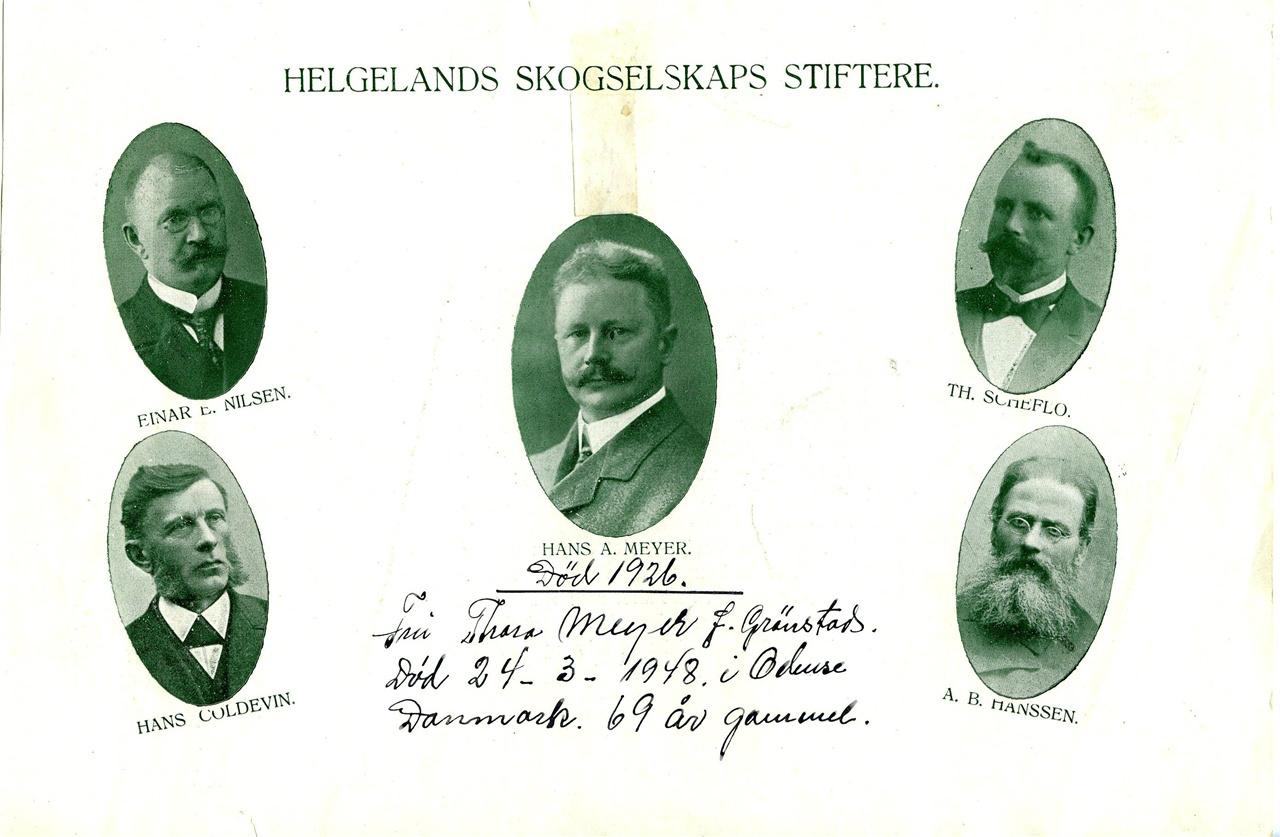 HELGELANDS SKOGSELSKAPS STIFTERE.
EINAR E. NILSEN.
TH. SCHEFLO.
HANS COLDEVIN.
A. B. HANSSEN.
HANS A. MEYER.
Död 1926.
Fru Thora Meyer f. Grönstads.
Död 24 - 3 - 1948. i Odense
Danmark. 69 år gammel.